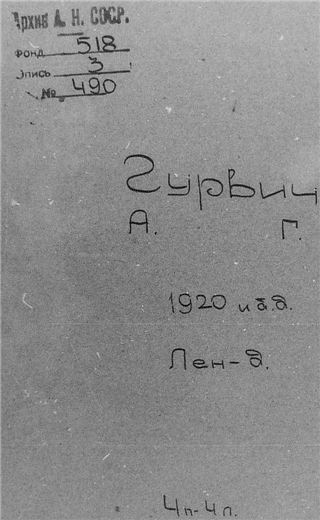 Архив А. Н. СССР.
Фонд 518
Опись 3
№ 490
Гурвич
А. Г.
1920 и б.д.
Лен-д.
4п-4л.